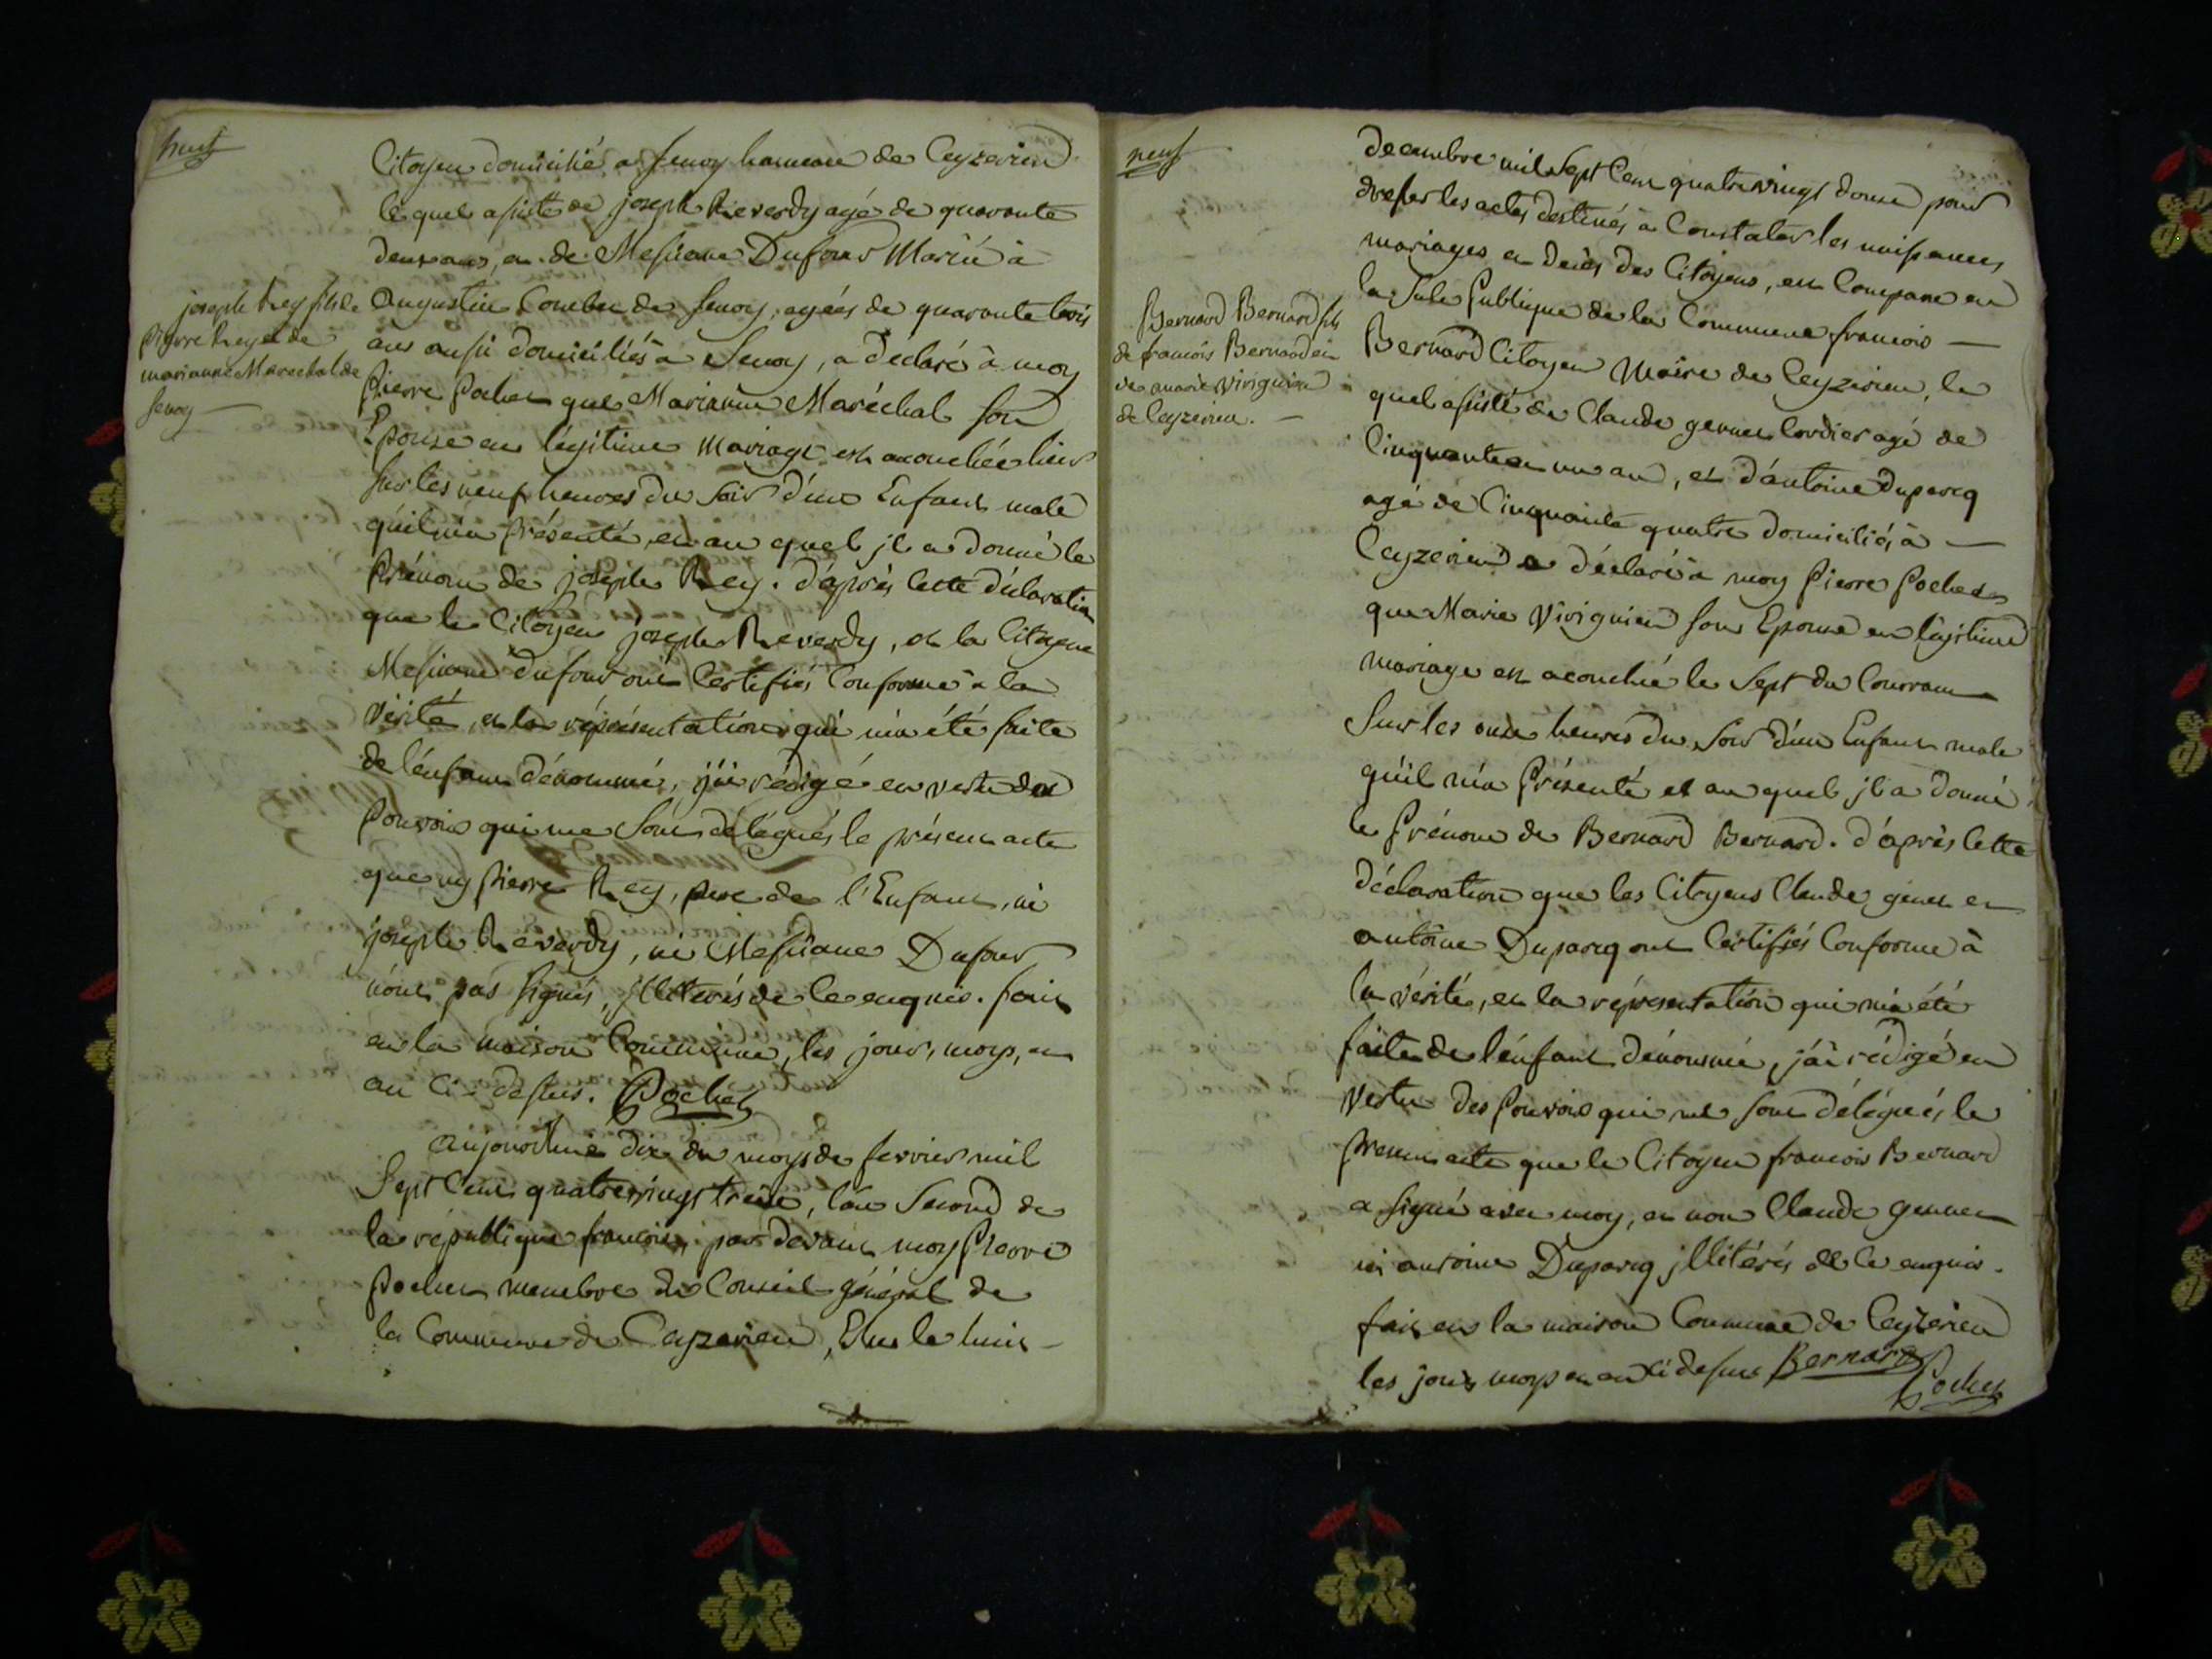 huit
Citoyen domicilié a Senoy hameau de Ceyzerieu
le quel assisté de joseph Reverdy agé de quarante
deux ans, et de Messiane Dufour Marié à
Augustin de Senoy, agées de quarante trois
ans aussi domiciliés à Senoy, a déclaré à moy
Pierre Pochet que Marianne Maréchal son
Epouse en légitime mariage est acouchée hier
sur les neuf heures du soir d'un Enfant male
qu'il m'a présenté, et au quel jl a donné le
Prénom de joseph Rey. d'après cette déclaration
que le Citoyen joseph Reverdy, et la Citoyene
Messiane Dufour ont Certifiés Conforme à la
vérité, et la réprésentation qui m'a été faite
de l'enfant dénommé, j'ai rédigé en vertu des
Pouvoirs qui me sont délégués le présent acte
que ny Pierre Rey, pere de l'Enfant, ni
joseph Reverdy, ni Messiane Dufour
n'ont pas signés, jlliterés de ce enquis. fait
en la maison Commune, les jour, moys, et
an Ci-dessus. Pochet
joseph Rey fils de
Pierre Rey et de
marianne Marechal de
Senoy —
Aujourdhui dix du moys de fevrier mil
Sept Cent quatrevingt treize, l'an Second de
la république francoise, par devant moy Pierre
Pochet membre du Conseil général de
la Commune de Ceyzerieu, Elus le huit —
neuf
decembre mil Sept Cent quatrevingt douze pour
dresser les actes destinés à Constater les naissances,
mariages et décès des Citoyens, est Comparu en
la Sale Publique de la Commune francois —
Bernard Citoyen Maire de Ceyzerieu, le
quel assisté de Claude genet Cordier agé de
Cinquante et un an, et d'antoine Duparcq
agé de Cinquante quatre domiciliés à —
Ceyzerieu a déclaré à moy Pierre Pochet
que Marie Virignieu son Epouse en légitime
mariage est acouchée le Sept du Courrant
Sur les onze heures du soir d'un Enfant male
qu'il m'a Présenté et au quel jl a donné
le Prénom de Bernard Bernard. d'après cette
déclaration que les Citoyens Claude genet et
antoine Duparcq ont Certifiés Conforme à
la vérité, et la réprésentation qui m'a été
faite de l'enfant dénommé, j'ai rédigé en
vertu des Pouvoirs qui me sont délégués, le
Present acte que le Citoyen francois Bernard
a signé avec moy, et non Claude gennet
ni antoine Duparcq jlliterés de ce enquis.
fait en la maison Commune de Ceyzerieu
les jour, moys et an Ci dessus Bernard
Pochet
Bernard Bernard fils
de francois Bernard et
de marie virignieu
de Ceyzerieu. —